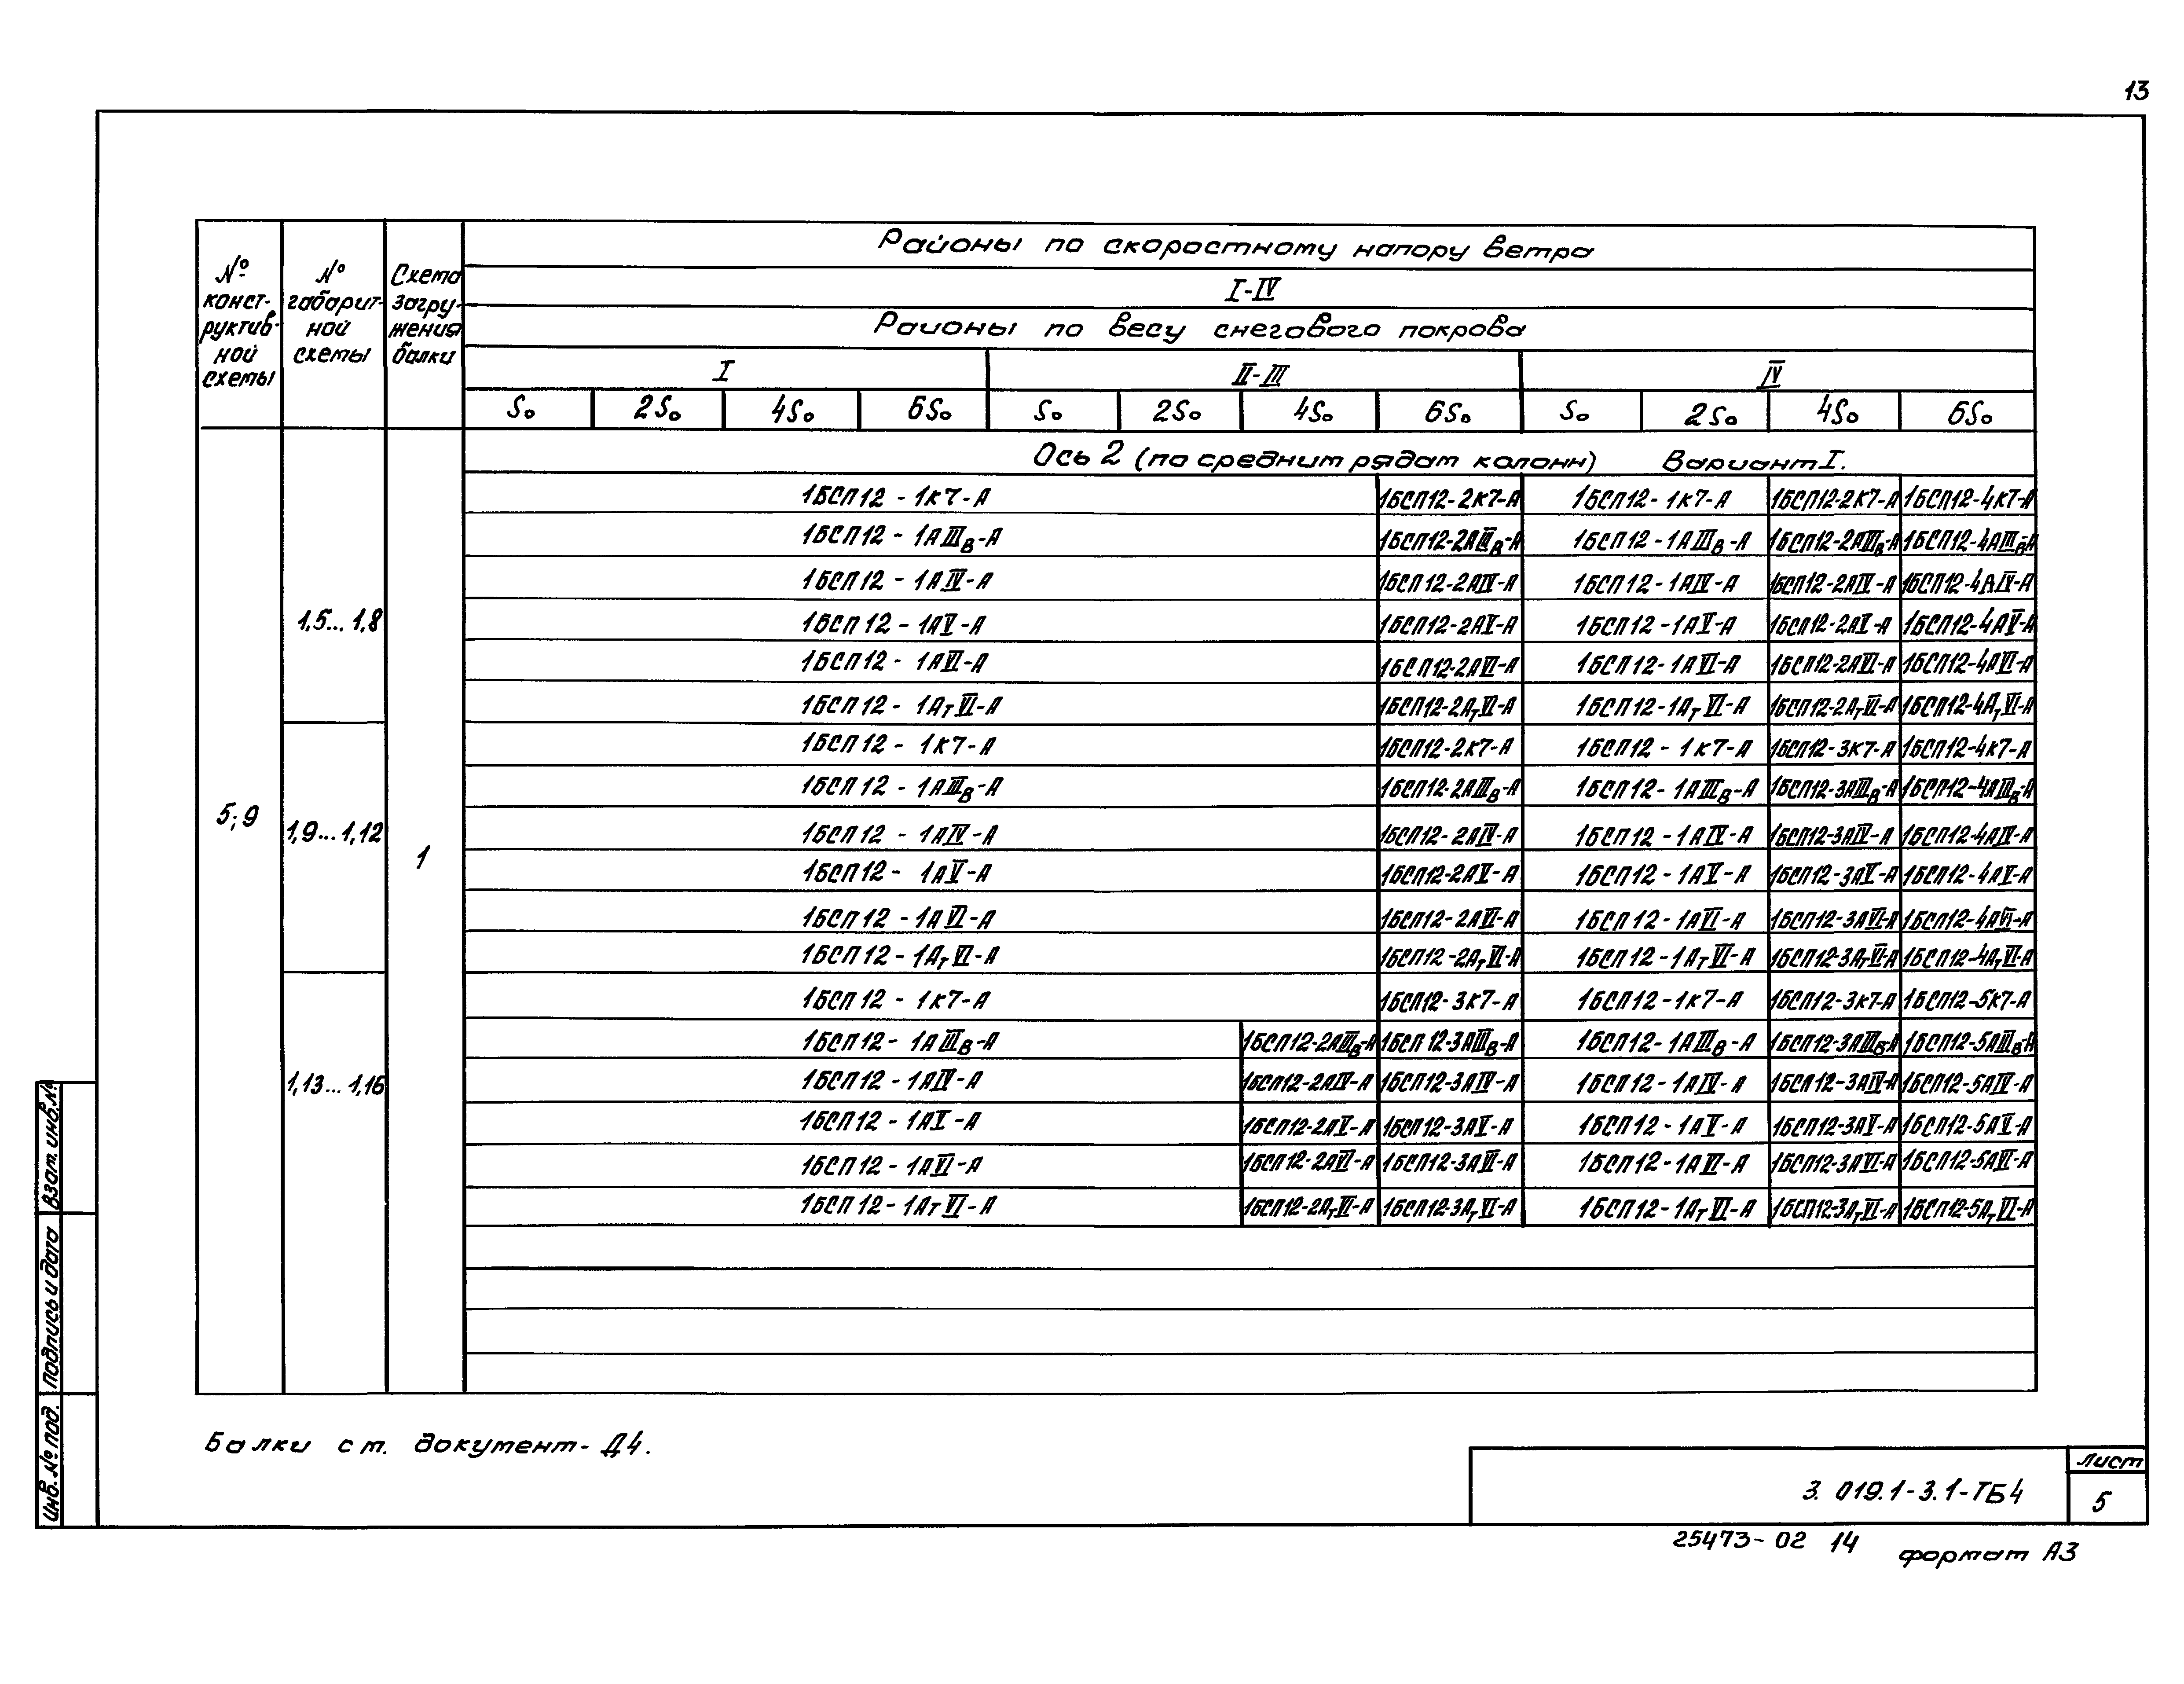 13
№ конструктивной схемы
№ габаритной схемы
Схема загружения балки
Районы по скоростному напору ветра
I-IV
Районы по весу снегового покрова
I II-III IV
S₀ 2S₀ 4S₀ 6S₀ S₀ 2S₀ 4S₀ 6S₀ S₀ 2S₀ 4S₀ 6S₀
Ось 2 (по средним рядам колонн) Вариант I.
5;9
1
1,5... 1,8
1БСП12 - 1К7-А 1БСП12-2К7-А 1БСП12-1К7-А 1БСП12-2К7-А 1БСП12-4К7-А
1БСП12 - 1АIIIв-А 1БСП12-2АIIIв-А 1БСП12-1АIIIв-А 1БСП12-2АIIIв-А 1БСП12-4АIIIв-А
1БСП12 - 1АIV-А 1БСП12-2АIV-А 1БСП12-1АIV-А 1БСП12-2АIV-А 1БСП12-4АIV-А
1БСП12 - 1АV-А 1БСП12-2АV-А 1БСП12-1АV-А 1БСП12-2АV-А 1БСП12-4АV-А
1БСП12 - 1АVI-А 1БСП12-2АVI-А 1БСП12-1АVI-А 1БСП12-2АVI-А 1БСП12-4АVI-А
1БСП12 - 1АтVI-А 1БСП12-2АтVI-А 1БСП12-1АтVI-А 1БСП12-2АтVI-А 1БСП12-4АтVI-А
1,9... 1,12
1БСП12 - 1К7-А 1БСП12-2К7-А 1БСП12-1К7-А 1БСП12-3К7-А 1БСП12-4К7-А
1БСП12 - 1АIIIв-А 1БСП12-2АIIIв-А 1БСП12-1АIIIв-А 1БСП12-3АIIIв-А 1БСП12-4АIIIв-А
1БСП12 - 1АIV-А 1БСП12-2АIV-А 1БСП12-1АIV-А 1БСП12-3АIV-А 1БСП12-4АIV-А
1БСП12 - 1АV-А 1БСП12-2АV-А 1БСП12-1АV-А 1БСП12-3АV-А 1БСП12-4АV-А
1БСП12 - 1АVI-А 1БСП12-2АVI-А 1БСП12-1АVI-А 1БСП12-3АVI-А 1БСП12-4АVI-А
1БСП12 - 1АтVI-А 1БСП12-2АтVI-А 1БСП12-1АтVI-А 1БСП12-3АтVI-А 1БСП12-4АтVI-А
1,13... 1,16
1БСП12 - 1К7-А 1БСП12-3К7-А 1БСП12-1К7-А 1БСП12-3К7-А 1БСП12-5К7-А
1БСП12 - 1АIIIв-А 1БСП12-2АIIIв-А 1БСП12-3АIIIв-А 1БСП12-1АIIIв-А 1БСП12-3АIIIв-А 1БСП12-5АIIIв-А
1БСП12 - 1АIV-А 1БСП12-2АIV-А 1БСП12-3АIV-А 1БСП12-1АIV-А 1БСП12-3АIV-А 1БСП12-5АIV-А
1БСП12 - 1АV-А 1БСП12-2АV-А 1БСП12-3АV-А 1БСП12-1АV-А 1БСП12-3АV-А 1БСП12-5АV-А
1БСП12 - 1АVI-А 1БСП12-2АVI-А 1БСП12-3АVI-А 1БСП12-1АVI-А 1БСП12-3АVI-А 1БСП12-5АVI-А
1БСП12 - 1АтVI-А 1БСП12-2АтVI-А 1БСП12-3АтVI-А 1БСП12-1АтVI-А 1БСП12-3АтVI-А 1БСП12-5АтVI-А
Балки см. документ-Д4.
Взам. инв. №
Подпись и дата
Инв. № под.
3.019.1-3.1-ТБ4
Лист
5
25473-02 14
формат А3